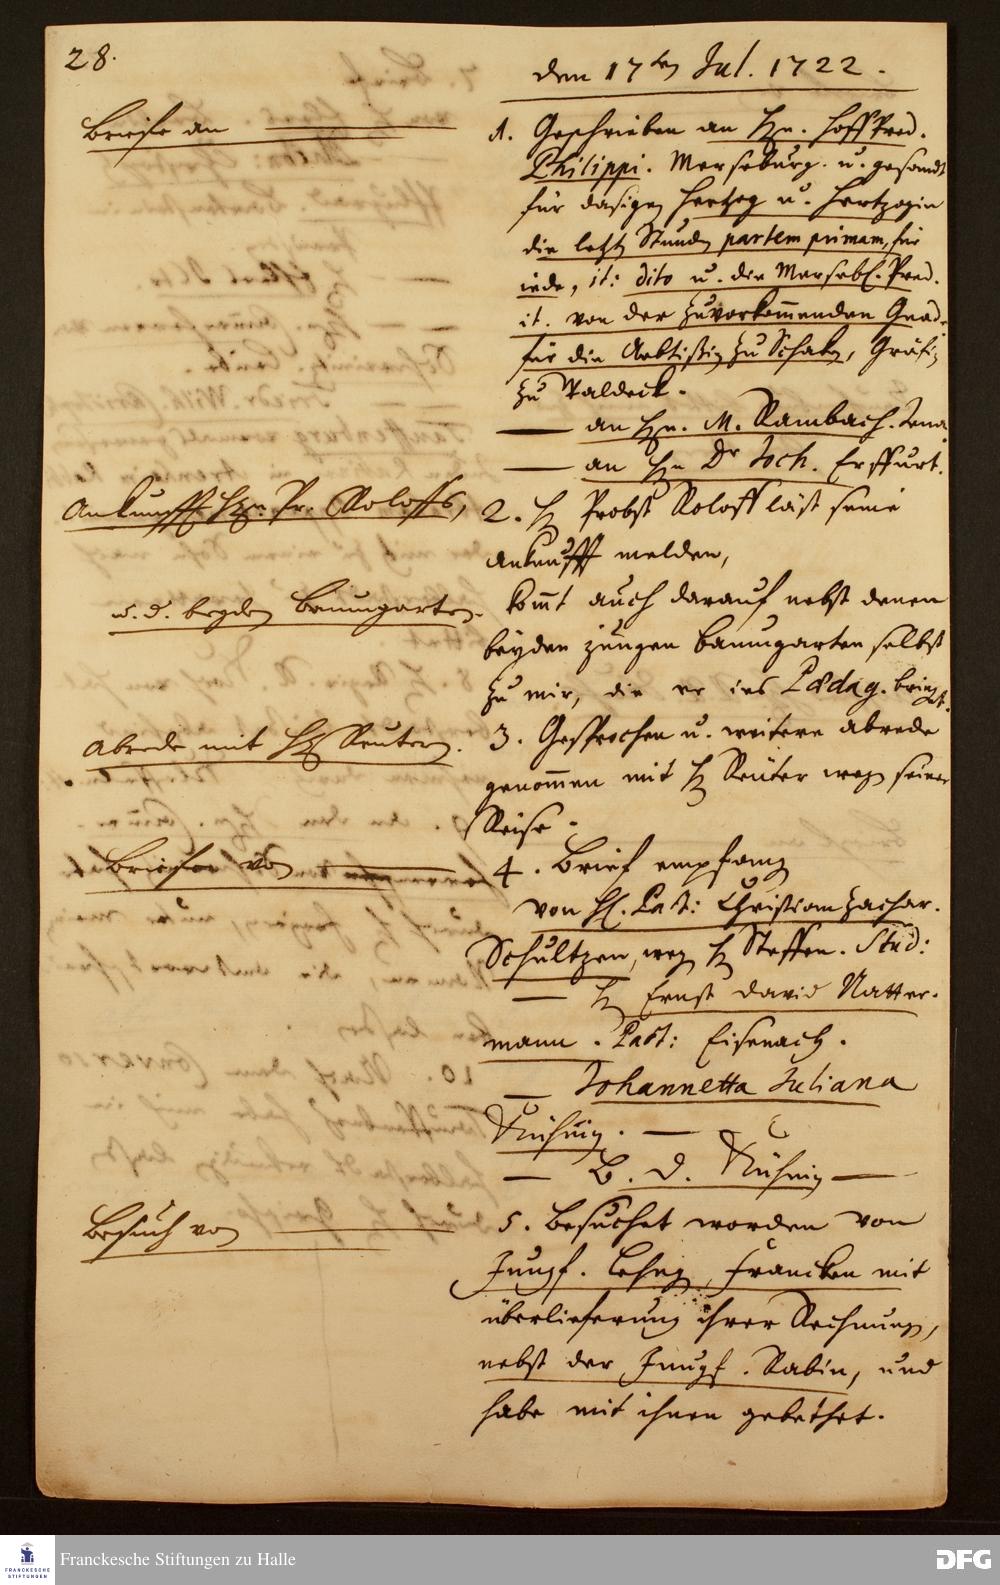 28.
den 17ten Jul. 1722.
Briefe an
1. Geschrieben an Hn. Hoffpred.
Philippi. Merseburg. u. gesandt
für dasigen Hertzog u. Hertzogin
die letzte Stunde partem primam, für
iede, it: dito u. die Mersebl. Pred.
it. von der zuvorkommenden Gnade
für die Aebtißin zu Schaken, Gräfin
zu Waldeck.
— an Hn. M. Rambach. Jena
— an Hn Dr Joch. Erffurt.
Ankunfft Hn. Pr. Roloffs,
2. H Probst Roloff läst seine
ankunfft melden,
u. d. beyden Baumgarten.
kommt auch darauf nebst denen
beyden jungen Baumgarten selbst
zu mir, die er ins Pædag. bringt.
Abrede mit H Reutern.
3. Gesprochen u. weitere abrede
genommen mit H Reuter wegen seiner
Reise.
Briefe von
4. Brief empfang
von H. Past: Christian Zachar.
Schultzen, weg H Steffen. Stud:
— H Ernst David Natter-
mann. Past: Eisenach.
— Johannetta Juliana
Kühnin. —
— B. D. Kühnin —
Besuch von
5. Besuchet worden von
Jungf. Francken mit
überlieferung ihrer Rechnung,
nebst der Jungf. Rabin, und
habe mit ihnen gebethet.
FRANCKESCHE
STIFTUNGEN
Franckesche Stiftungen zu Halle
DFG